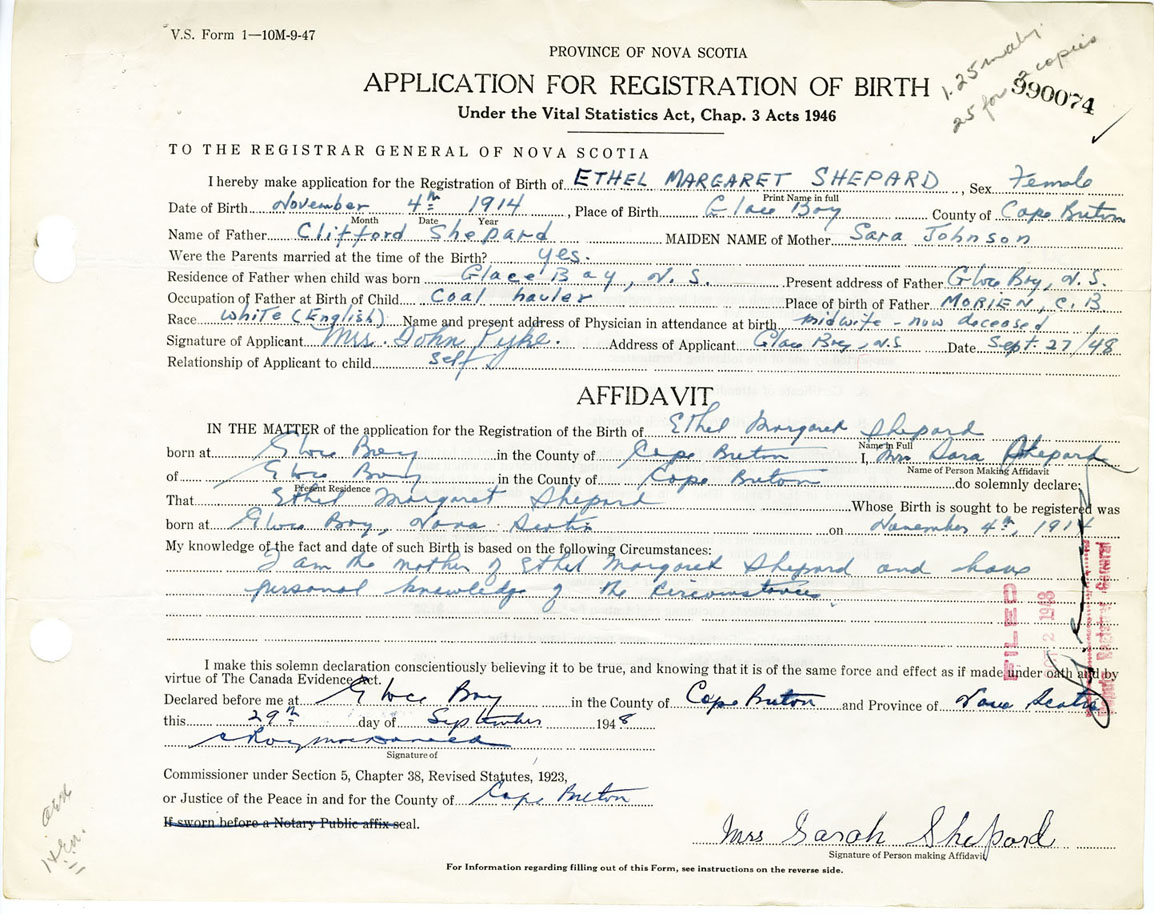 V.S. Form 1—10M-9-47
PROVINCE OF NOVA SCOTIA
1.25 
25 for 2 copies
990074
APPLICATION FOR REGISTRATION OF BIRTH
Under the Vital Statistics Act, Chap. 3 Acts 1946
TO THE REGISTRAR GENERAL OF NOVA SCOTIA
I hereby make application for the Registration of Birth of ETHEL MARGARET SHEPARD, Sex Female
Print Name in full
Date of Birth November 4th 1914, Place of Birth Glace Bay County of Cape Breton
Month Date Year
Name of Father Clifford Shepard MAIDEN NAME of Mother Sara Johnson
Were the Parents married at the time of the Birth? yes.
Residence of Father when child was born Glace Bay, N.S. Present address of Father Glace Bay, N.S.
Occupation of Father at Birth of Child Coal hauler Place of birth of Father MORIEN, C.B
Race White (English) Name and present address of Physician in attendance at birth midwife - now deceased
Signature of Applicant Mrs. John Pyke. Address of Applicant Glace Bay, N.S Date Sept. 27/48
Relationship of Applicant to child Self
AFFIDAVIT
IN THE MATTER of the application for the Registration of the Birth of Ethel Margaret Shepard
Name in Full
born at Glace Bay in the County of Cape Breton I, Mrs Sara Shepard
Name of Person Making Affidavit
of Glace Bay in the County of Cape Breton do solemnly declare;
Present Residence
That Ethel Margaret Shepard Whose Birth is sought to be registered was
born at Glace Bay, Nova Scotia on November 4th, 1914
My knowledge of the fact and date of such Birth is based on the following Circumstances:
I am the mother of Ethel Margaret Shepard and have
personal knowledge of the circumstances.
FILED
OCT 2 1948
Deputy Registrar General
I make this solemn declaration conscientiously believing it to be true, and knowing that it is of the same force and effect as if made under oath and by
virtue of The Canada Evidence Act.
Declared before me at Glace Bay in the County of Cape Breton and Province of Nova Scotia
this 29th day of September 1948
Signature of
Commissioner under Section 5, Chapter 38, Revised Statutes, 1923,
or Justice of the Peace in and for the County of Cape Breton
If sworn before a Notary Public affix seal.
Mrs Sarah Shepard
Signature of Person making Affidavit
For Information regarding filling out of this Form, see instructions on the reverse side.